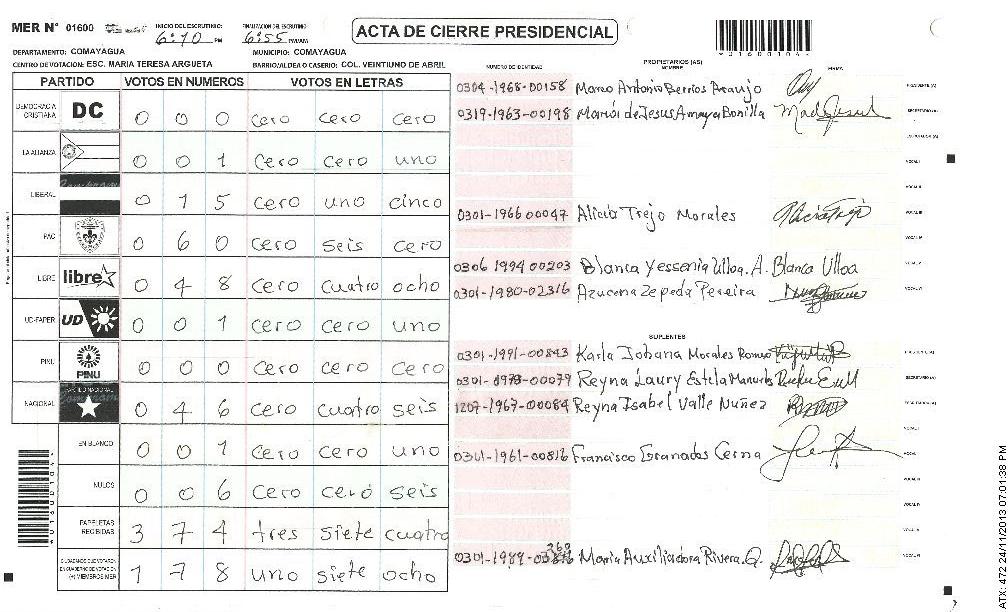 MER N° 01600
INICIO DEL ESCRUTINIO: 6:10 PM
FINALIZACION DEL ESCRUTINIO 6:55 PM/AM
ACTA DE CIERRE PRESIDENCIAL
DEPARTAMENTO: COMAYAGUA
MUNICIPIO: COMAYAGUA
CENTRO DE VOTACION: ESC. MARIA TERESA ARGUETA
BARRIO/ALDEA O CASERIO: COL. VEINTIUNO DE ABRIL
PARTIDO VOTOS EN NUMEROS VOTOS EN LETRAS
DEMOCRACIA CRISTIANA DC 0 0 0 cero cero cero
LA ALIANZA 0 0 1 cero cero uno
LIBERAL 0 1 5 cero uno cinco
PAC 0 6 0 cero seis cero
LIBRE libre 0 4 8 cero cuatro ocho
UD-FAPER UD 0 0 1 cero cero uno
PINU PINU 0 0 0 cero cero cero
NACIONAL 0 4 6 cero cuatro seis
EN BLANCO 0 0 1 cero cero uno
NULOS 0 0 6 cero cero seis
PAPELETAS RECIBIDAS 3 7 4 tres siete cuatro
CIUDADANOS QUE VOTARON
EN CUADERNO DE VOTACION
(+) MIEMBROS MER 1 7 8 uno siete ocho
PROPIETARIOS (AS)
NUMERO DE IDENTIDAD NOMBRE FIRMA
0304-1968-00158 Marco Antonio Berrios Araujo PRESIDENTE (A)
0319-1963-00198 María de Jesus Amaya Bonilla SECRETARIO (A)
ESCRUTADOR (A)
VOCAL I
VOCAL II
0301-1966 00047 Alicia Trejo Morales VOCAL III
VOCAL IV
0306 1994 00203 Blanca Yessenia Ulloa. A. Blanca Ulloa VOCAL V
0301-1980-02316 Azucena Zepeda Pereira VOCAL VI
SUPLENTES
0301-1991-00843 Karla Johana Morales Romero PRESIDENTE (A)
0301-1973-00079 Reyna Laury Estela SECRETARIO (A)
1207-1967-00084 Reyna Isabel Valle Nuñez ESCRUTADOR (A)
VOCAL I
0301-1961-00816 Francisco Granados Cerna
VOCAL III
VOCAL IV
VOCAL V
0301-1989- Maria Auxiliadora Rivera. O. VOCAL VI
ATX: 472 24/11/2013 07:01:38 PM